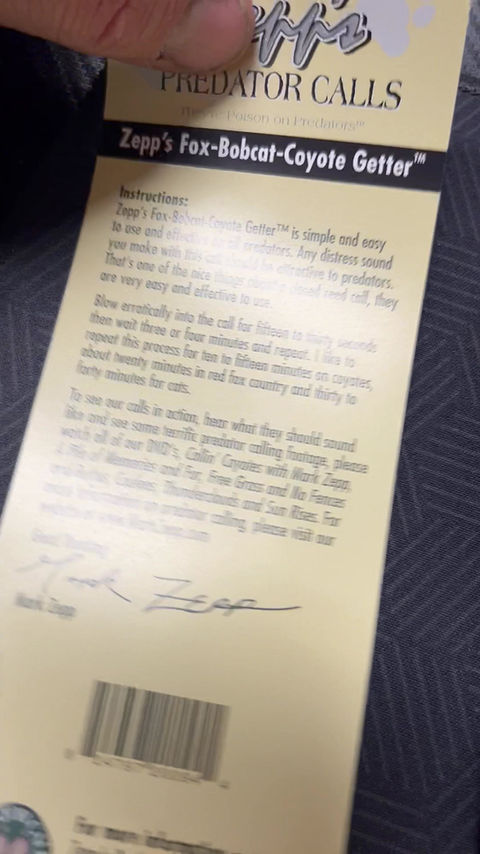 Zepp's
PREDATOR CALLS
They're Poison on Predators™
Zepp's Fox-Bobcat-Coyote Getter™
Instructions:
Zepp's Fox-Bobcat-Coyote Getter™ is simple and easy
to use and effective on all predators. Any distress sound
you make with this call should be attractive to predators.
That's one of the nice things about a closed reed call, they
are very easy and effective to use.
Blow erratically into the call for fifteen to thirty seconds
then wait three or four minutes and repeat. I like to
repeat this process for ten to fifteen minutes on coyotes,
about twenty minutes in red fox country and thirty to
forty minutes for cats.
To see our calls in action, hear what they should sound
like and see some terrific predator calling footage, please
watch all of our DVD's, Callin' Coyotes with Mark Zepp,
of Memories and Fur, Free Grass and No Fences
Thunderclouds and Sun Rises. For
predator calling, please visit our
Mark Zepp
Mark Zepp
For more information